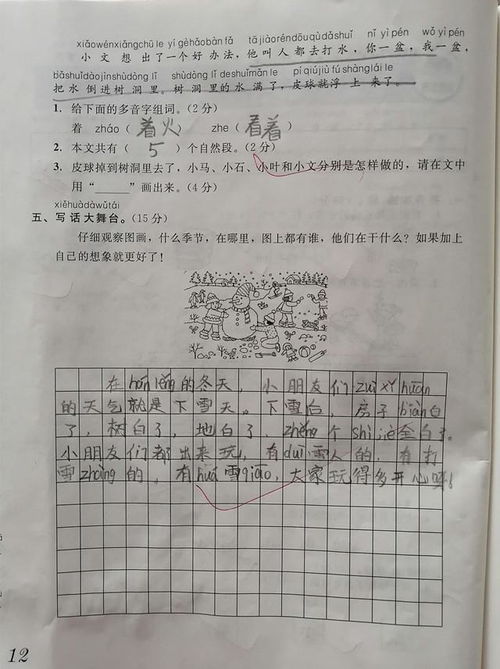 xiǎowénxiǎngchū le yí gèhǎobàn fǎ tā jiàoréndōuqùdǎshuǐ nǐ yì pén wǒ yì pén
小文想出了一个好办法,他叫人都去打水,你一盆,我一盆,
bǎshuǐdàojìnshùdòng lǐ shùdòng lǐ deshuǐmǎn le pí qiújiù fú shàng lái le
把水倒进树洞里。树洞里的水满了,皮球就浮上来了。
1. 给下面的多音字组词。(2分)
着 zháo(着火) zhe(看着)
2. 本文共有(5)个自然段。(2分)
3. 皮球掉到树洞里去了,小马、小石、小叶和小文分别是怎样做的,请在文中
用“______”画出来。(4分)
xiěhuàdàwǔtái
五、写话大舞台。(15分)
仔细观察图画,什么季节,在哪里,图上都有谁,他们在干什么?如果加上
自己的想象就更好了!
在hán lěng的冬天,小朋友们zuì xǐ huān
的天气就是下雪天。下雪后,房子biàn白
了,树白了,地白了,zhěng个shì 都全白了。
小朋友们都出来玩,有duī雪人的,有打
雪zhàng的。有huá雪qiāo,大家玩得多开心呀!
12